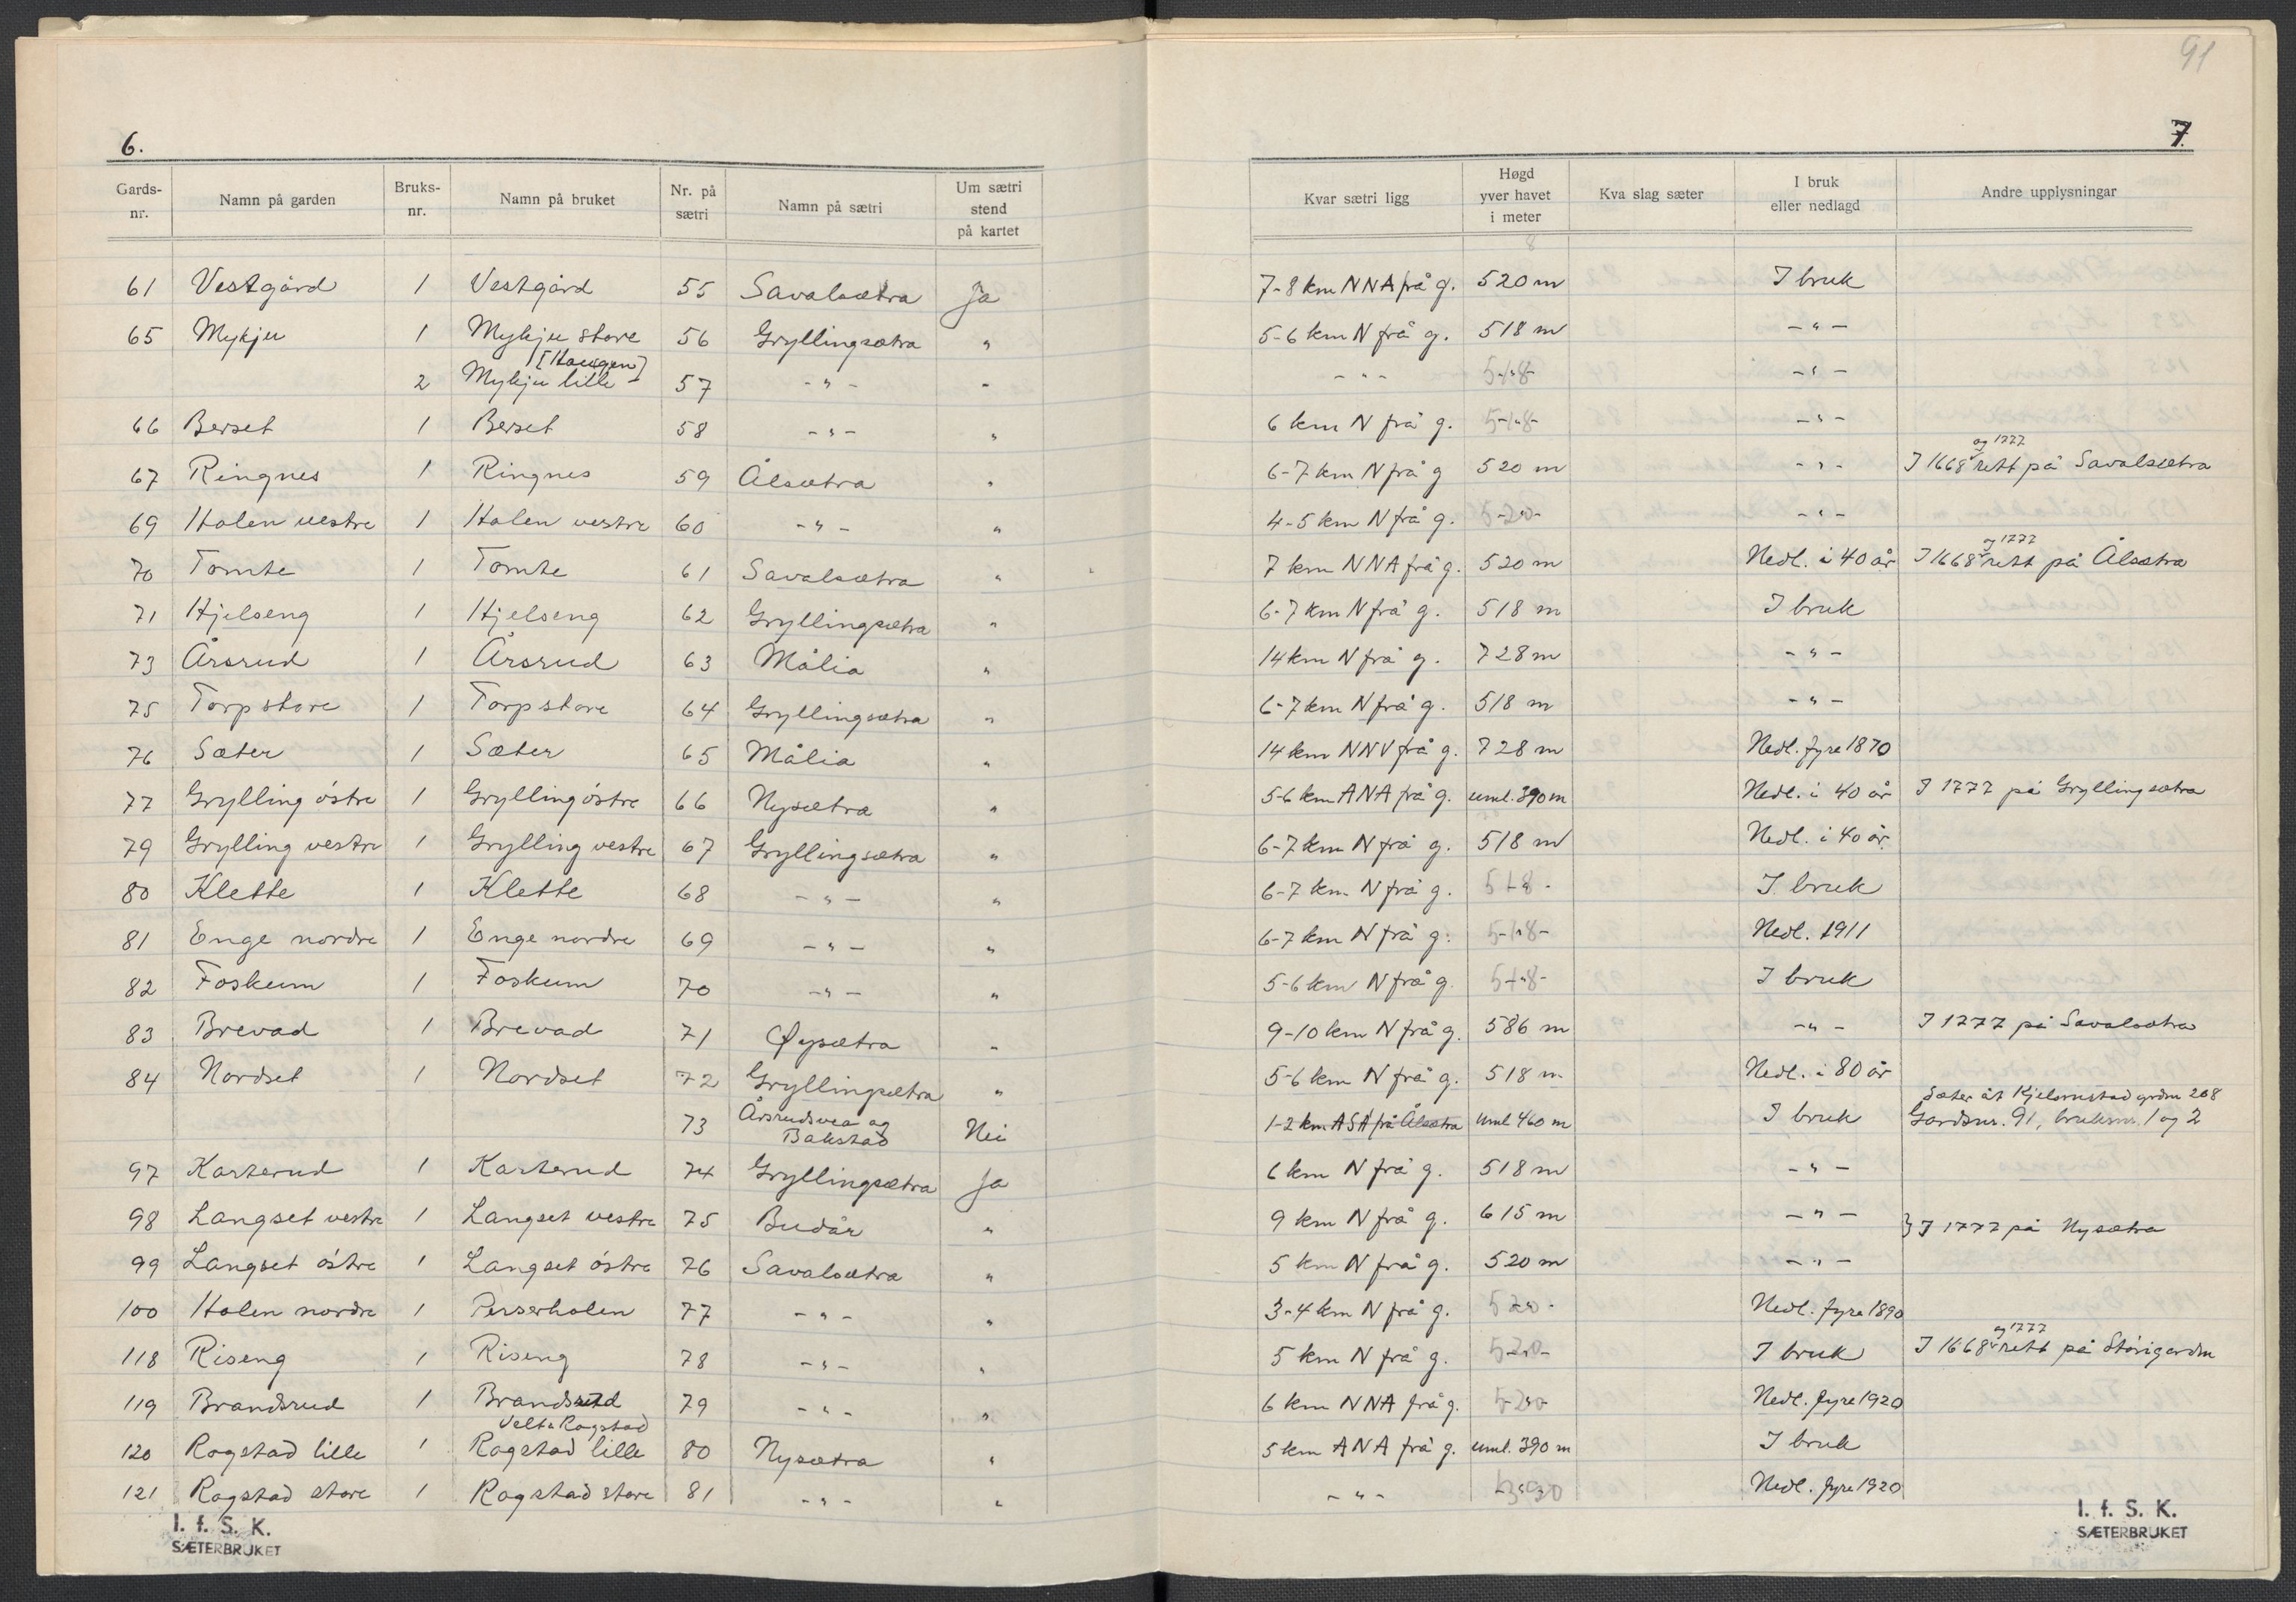 91
6.
7.
Gards-nr. Namn på garden Bruks-nr. Namn på bruket Nr. på sætri Namn på sætri Um sætri stend på kartet Kvar sætri ligg Høgd yver havet i meter Kva slag sæter I bruk eller nedlagd Andre upplysningar
61 Vestgård 1 Vestgård 55 Savalsætra Ja 7-8 km NNA frå g. 520 m I bruk
65 Mykju 1 Mykju store 56 Gryllingsætra " 5-6 km N frå g. 518 m -"-
[Haugen]
2 Mykju lille 57 -"- " -"- 518 -"-
66 Berset 1 Berset 58 -"- " 6 km N frå g. 518 -"-
og 1777
67 Ringnes 1 Ringnes 59 Ålsætra " 6-7 km N frå g 520 m -"- I 1668 rett på Savalsætra
69 Holen vestre 1 Holen vestre 60 -"- " 4-5 km N frå g. 520 -"-
og 1777
70 Tomte 1 Tomte 61 Savalsætra " 7 km NNA frå g. 520 m Nedl. i 40 år I 1668 rett på Ålsætra
71 Hjelseng 1 Hjelseng 62 Gryllingsætra " 6-7 km N frå g. 518 m I bruk
73 Årsrud 1 Årsrud 63 Målia " 14 km N frå g. 728 m -"-
75 Torp store 1 Torp store 64 Gryllingsætra " 6-7 km N frå g. 518 m -"-
76 Sæter 1 Sæter 65 Målia " 14 km NNV frå g. 728 m Nedl. fyre 1870
77 Grylling östre 1 Grylling östre 66 Nysætra " 5-6 km ANA frå g. uml. 390 m Nedl. i 40 år I 1777 på Gryllingsætra
79 Grylling vestre 1 Grylling vestre 67 Gryllingsætra " 6-7 km N frå g. 518 m Nedl. i 40 år.
80 Klette 1 Klette 68 -"- " 6-7 km N frå g. 518 I bruk
81 Enge nordre 1 Enge nordre 69 -"- " 6-7 km N frå g. 518 Nedl. 1911
82 Foskum 1 Foskum 70 -"- " 5-6 km N frå g. 518 I bruk
83 Brevad 1 Brevad 71 Øysætra " 9-10 km N frå g. 586 m -"- I 1777 på Savalsætra
84 Nordset 1 Nordset 72 Gryllingsætra " 5-6 km N frå g. 518 m Nedl. i 80 år
Sæter åt Kjelsrustad grdnr 208
73 Årsrudsvea og Bakstad Nei 1-2 km ASA frå Ålsætra uml 460 m I bruk Gardsnr. 91, bruksnr. 1 og 2
97 Karterud 1 Karterud 74 Gryllingsætra Ja 6 km N frå g. 518 m -"-
98 Langset vestre 1 Langset vestre 75 Budår " 9 km N frå g. 615 m -"-
} I 1777 på Nysætra
99 Langset östre 1 Langset östre 76 Savalsætra " 5 km N frå g. 520 m -"-
100 Holen nordre 1 Perserholen 77 -"- " 3-4 km N frå g. 520 Nedl. fyre 1890
og 1777
118 Riseng 1 Riseng 78 -"- " 5 km N frå g. 520 I bruk I 1668 rett på Störigardm
119 Brandsrud 1 Brandsrud 79 -"- " 6 km NNA frå g. 520 Nedl. fyre 1920
Velta Rogstad
120 Rogstad lille 1 Rogstad lille 80 Nysætra " 5 km ANA frå g. uml. 390 m I bruk
121 Rogstad store 1 Rogstad store 81 -"- " -"- 390 Nedl. fyre 1920
I. f. S. K.
SÆTERBRUKET
I. f. S. K.
SÆTERBRUKET